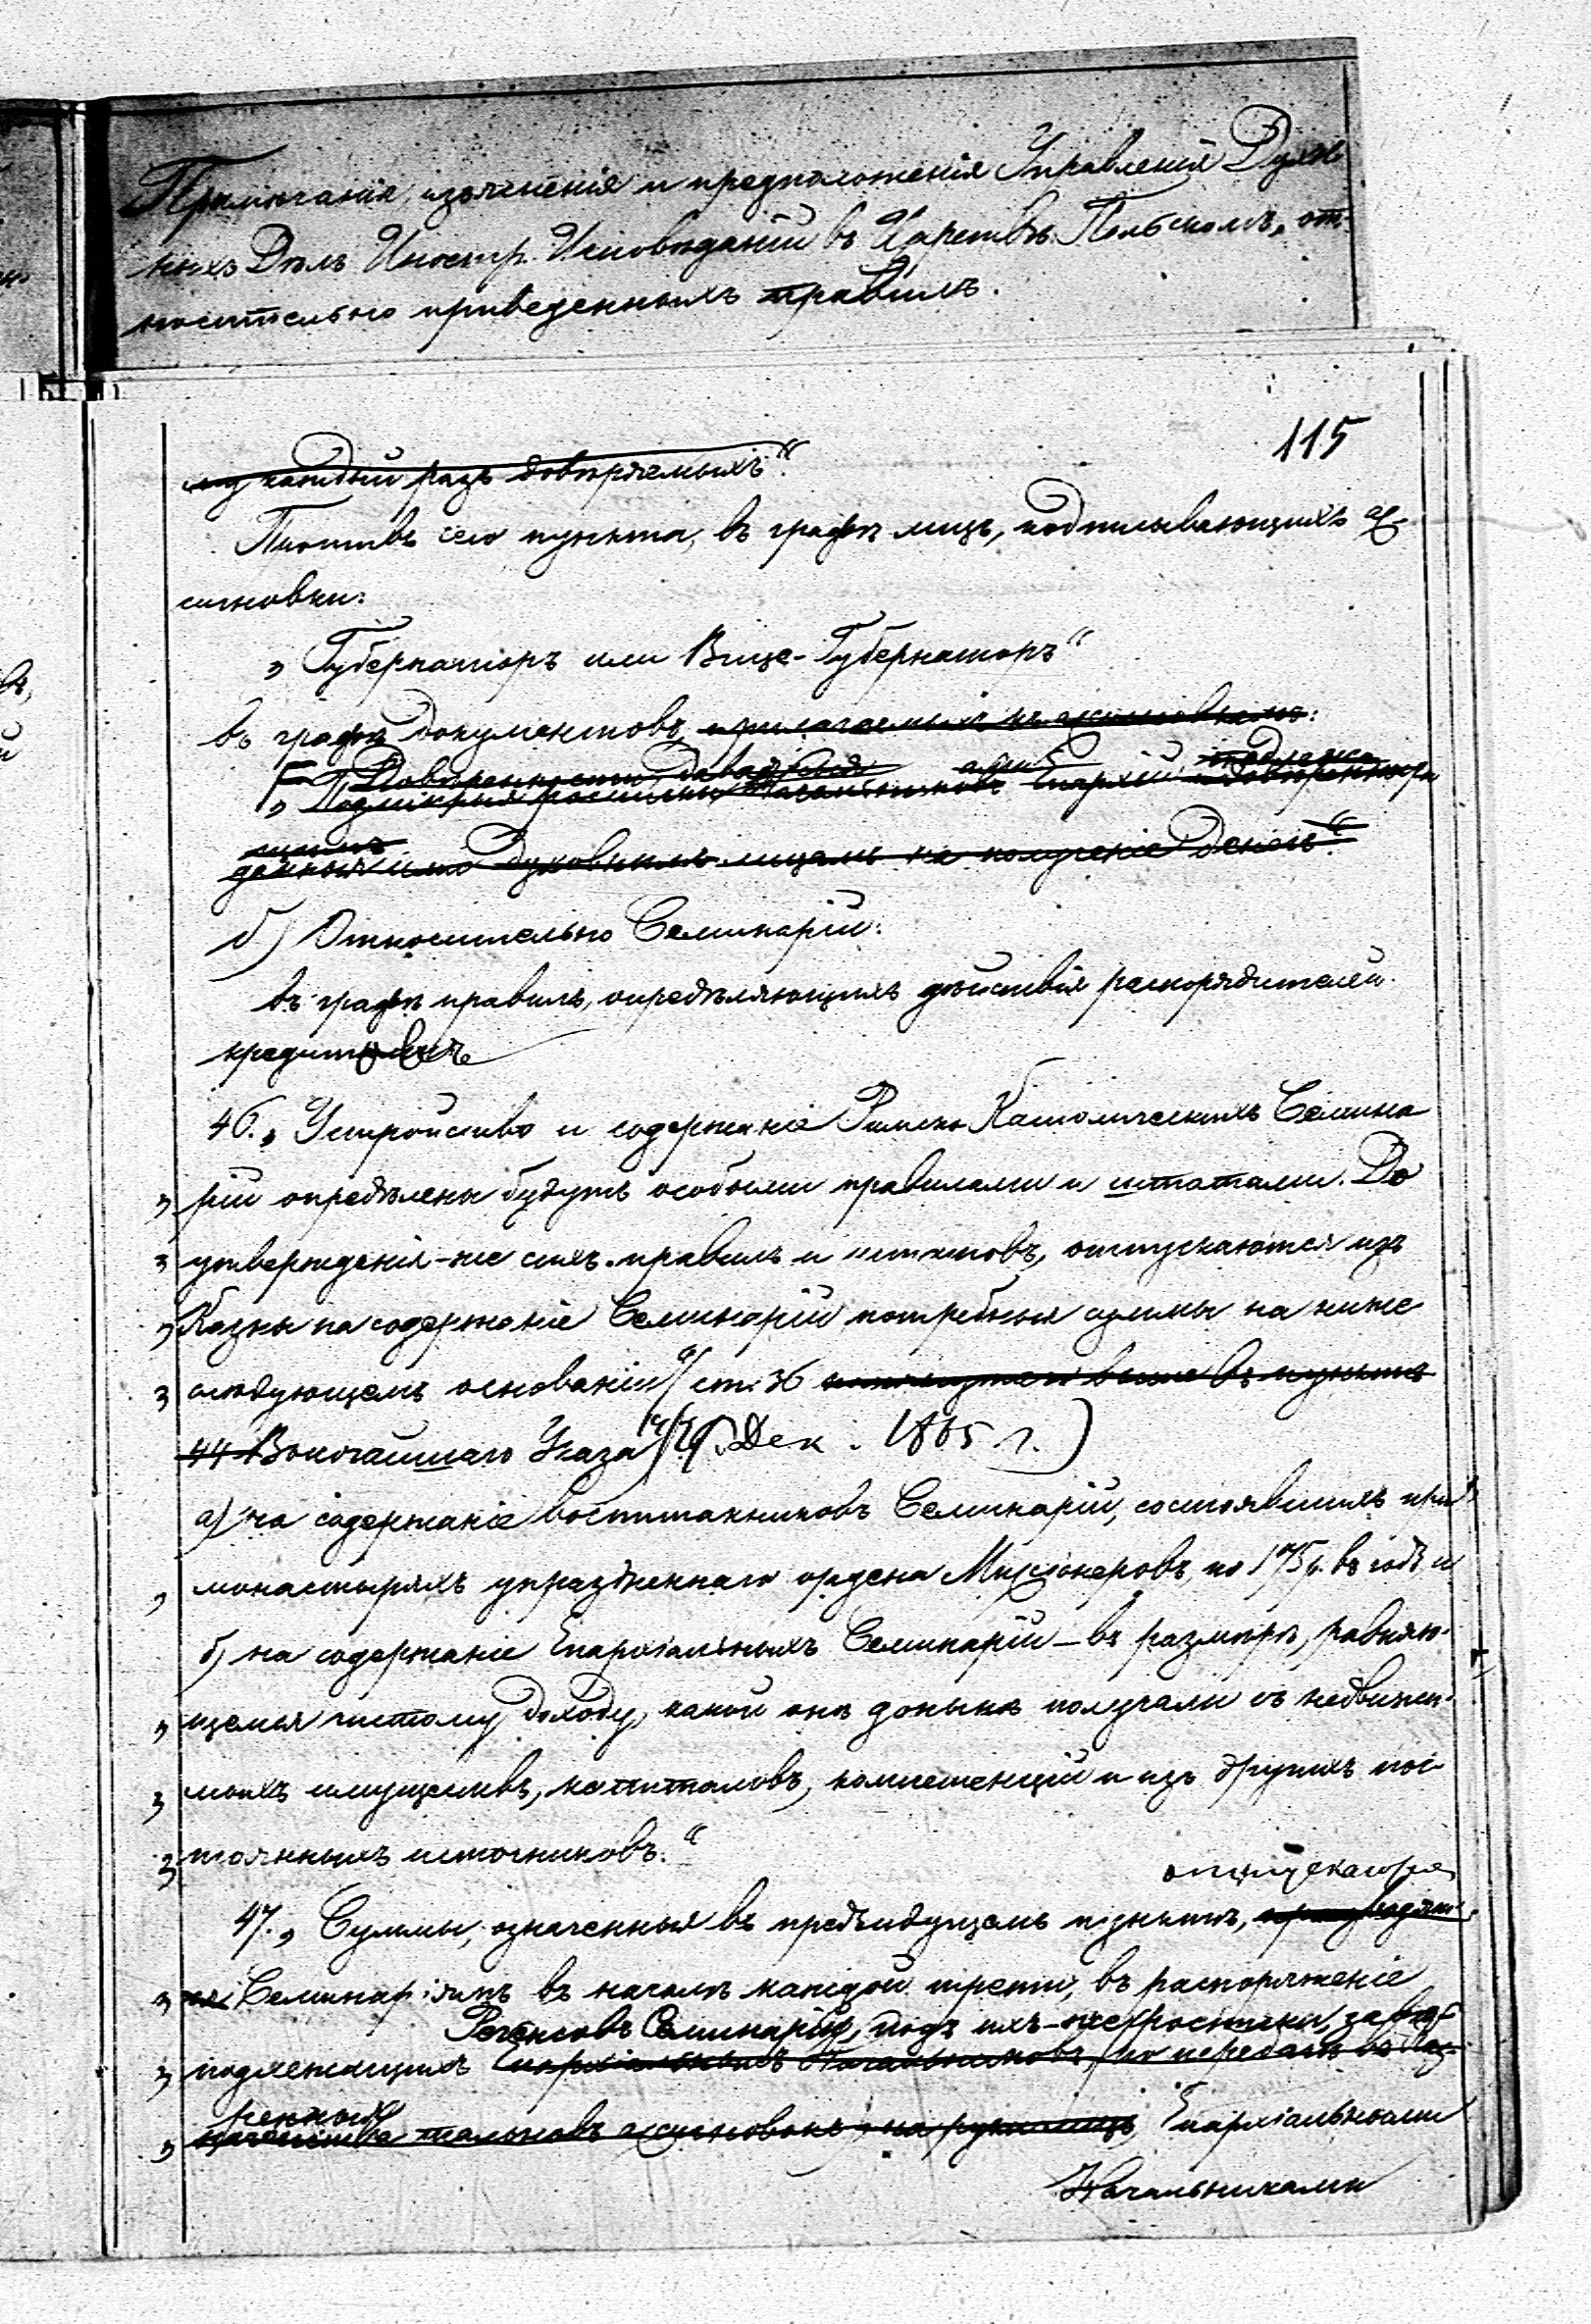 Примѣчанія, изъясненія и предположенія Управленія Духов
ныхъ Дѣлъ Иностр. Исповѣданій въ Царствѣ Польскомъ, от-
носительно приведенныхъ правилъ.
115
каждый разъ довѣряемыхъ“.
Противъ сего пункта, въ графѣ лицъ, подписывающихъ ас-
сигновки:
„Губернаторъ или Вице-Губернаторъ“
въ графѣ документовъ, прилагаемыхъ къ ассигновкамъ:
Епархій
данныя духовнымъ лицамъ на полученіе денегъ“.
б) Относительно Семинарій:
въ графѣ правилъ, опредѣляющихъ дѣйствія распорядителей
кредитовъ
46. „Устройство и содержаніе Римско Католическихъ Семина
„рій опредѣлены будутъ особыми правилами и штатами. До
„утвержденія-же сихъ правилъ и штатовъ, отпускаются изъ
„Казны на содержаніе Семинарій потребныя суммы на ниже
„слѣдующемъ основаніи“ (ст. 36 въ пунктѣ
44 Высочайшаго Указа 14/26 Дек. 1865 г.)
а) на содержаніе воспитанниковъ Семинарій, состоявшихъ при
„монастыряхъ упраздненнаго ордена Миссіонеровъ, по 175 р. въ годъ и
б) на содержаніе Епархіальныхъ Семинарій – въ размѣрѣ, равняю-
„щемся чистому доходу, какой онѣ донынѣ получали съ недвижи-
„мыхъ имуществъ, капиталовъ, компетенцій и изъ другихъ пос-
„тоянныхъ источниковъ.“
отпускаются
47. „Суммы, означенныя въ предъидущемъ пунктѣ,
„Семинаріямъ въ началѣ каждой трети, въ распоряженіе
Регенсовъ Семинарій, подъ ихъ-же росписки, завѣ-
„подлежащихъ Епархіальныхъ Начальниковъ, по передачѣ
ренныя
„талоновъ ассигновокъ, Епархіальными
Начальниками